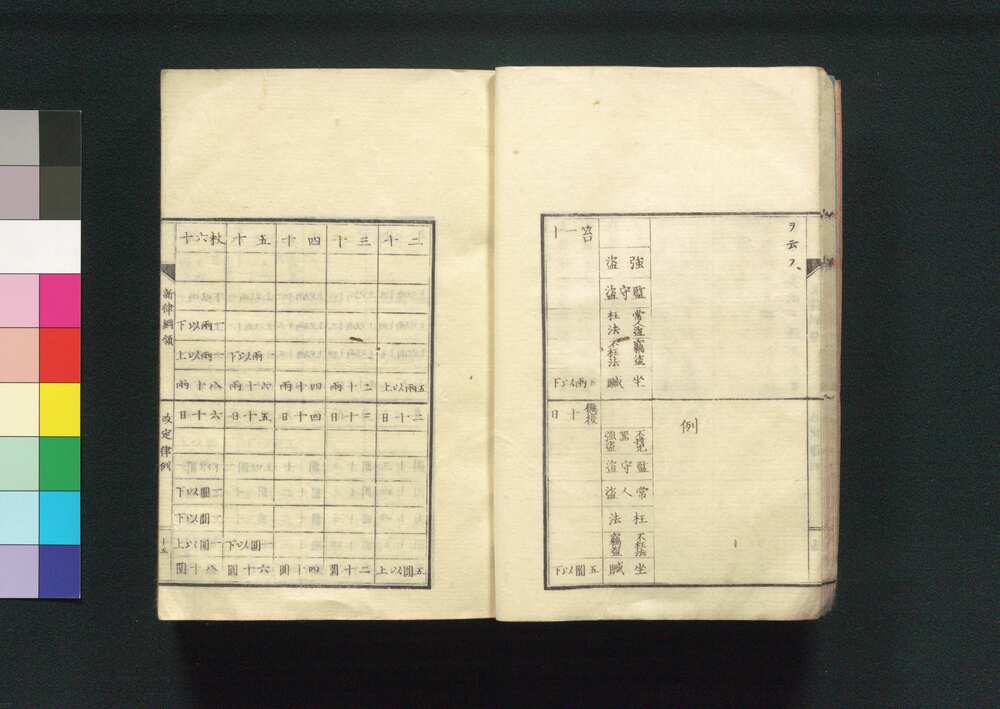 ヲ云フ、
例
強盗
監守盗
常人盗 枉法
竊盗 不枉法
坐贓
不持兇器強盗
監守盗
常人盗
枉法
不枉法 竊盗
坐贓
笞一十
五兩以下
懲役十日
五圓以下
二十
五兩以上
二十日
五圓以上
三十
二十兩
三十日
二十圓
四十
四十兩
四十日
四十圓
五十
一兩以下
六十兩
五十日
一圓以下
六十圓
杖六十
一兩以下
一兩以上
八十兩
六十日
一圓以下
一圓以下
一圓以上
八十圓
新律綱領
改定律例
十五